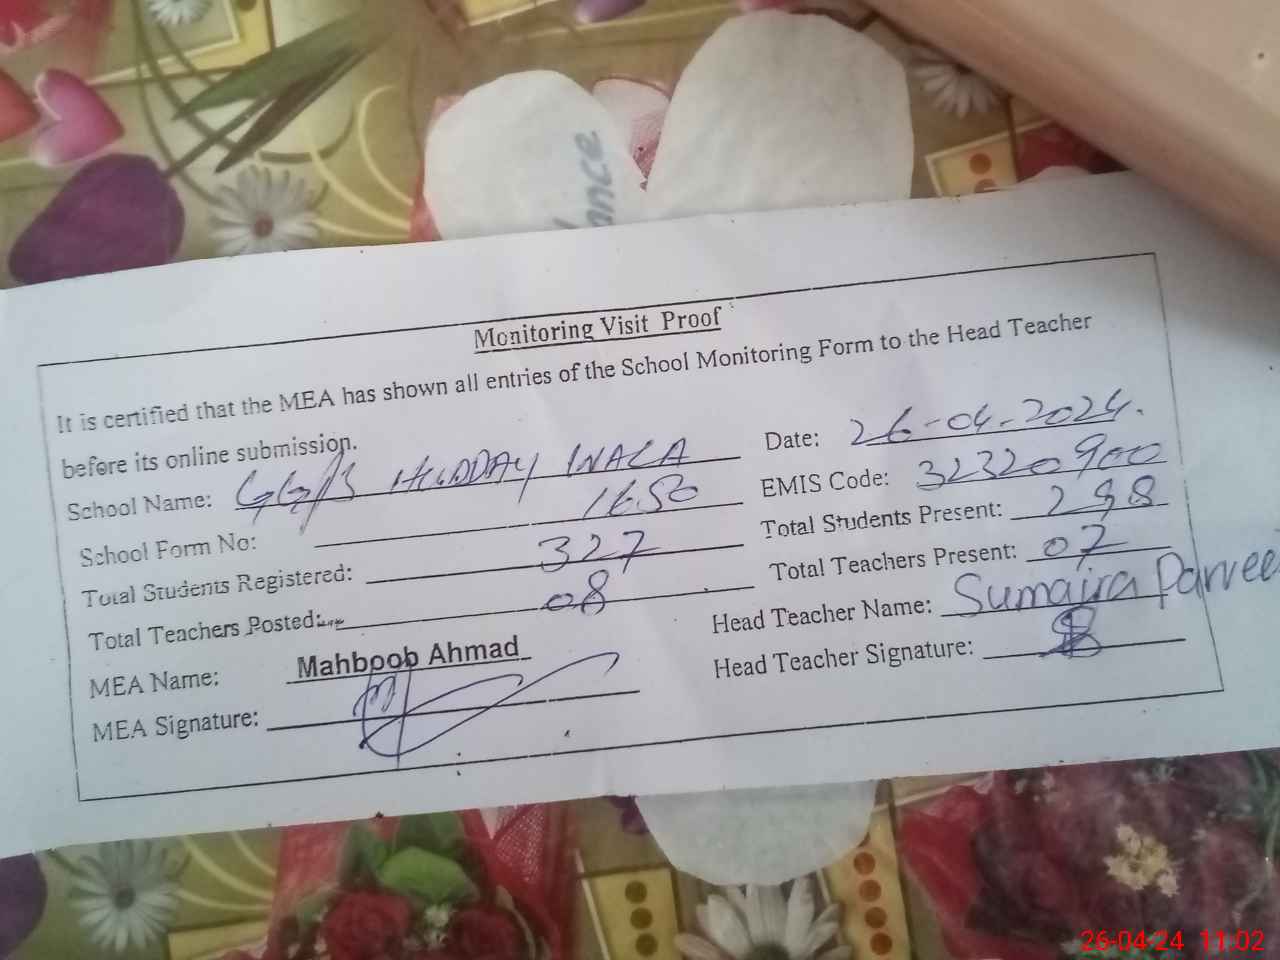 ance
Monitoring Visit Proof
It is certified that the MEA has shown all entries of the School Monitoring Form to the Head Teacher
before its online submission.
School Name: HUDDAY WALA Date: 26-04-2024.
School Form No: 1650 EMIS Code: 32320900
Total Students Registered: 327 Total Students Present: 298
Total Teachers Posted: 08 Total Teachers Present: 07
MEA Name: Mahboob Ahmad Head Teacher Name: Sumaira Parvee
MEA Signature: Head Teacher Signature:
26-04-24 11:02